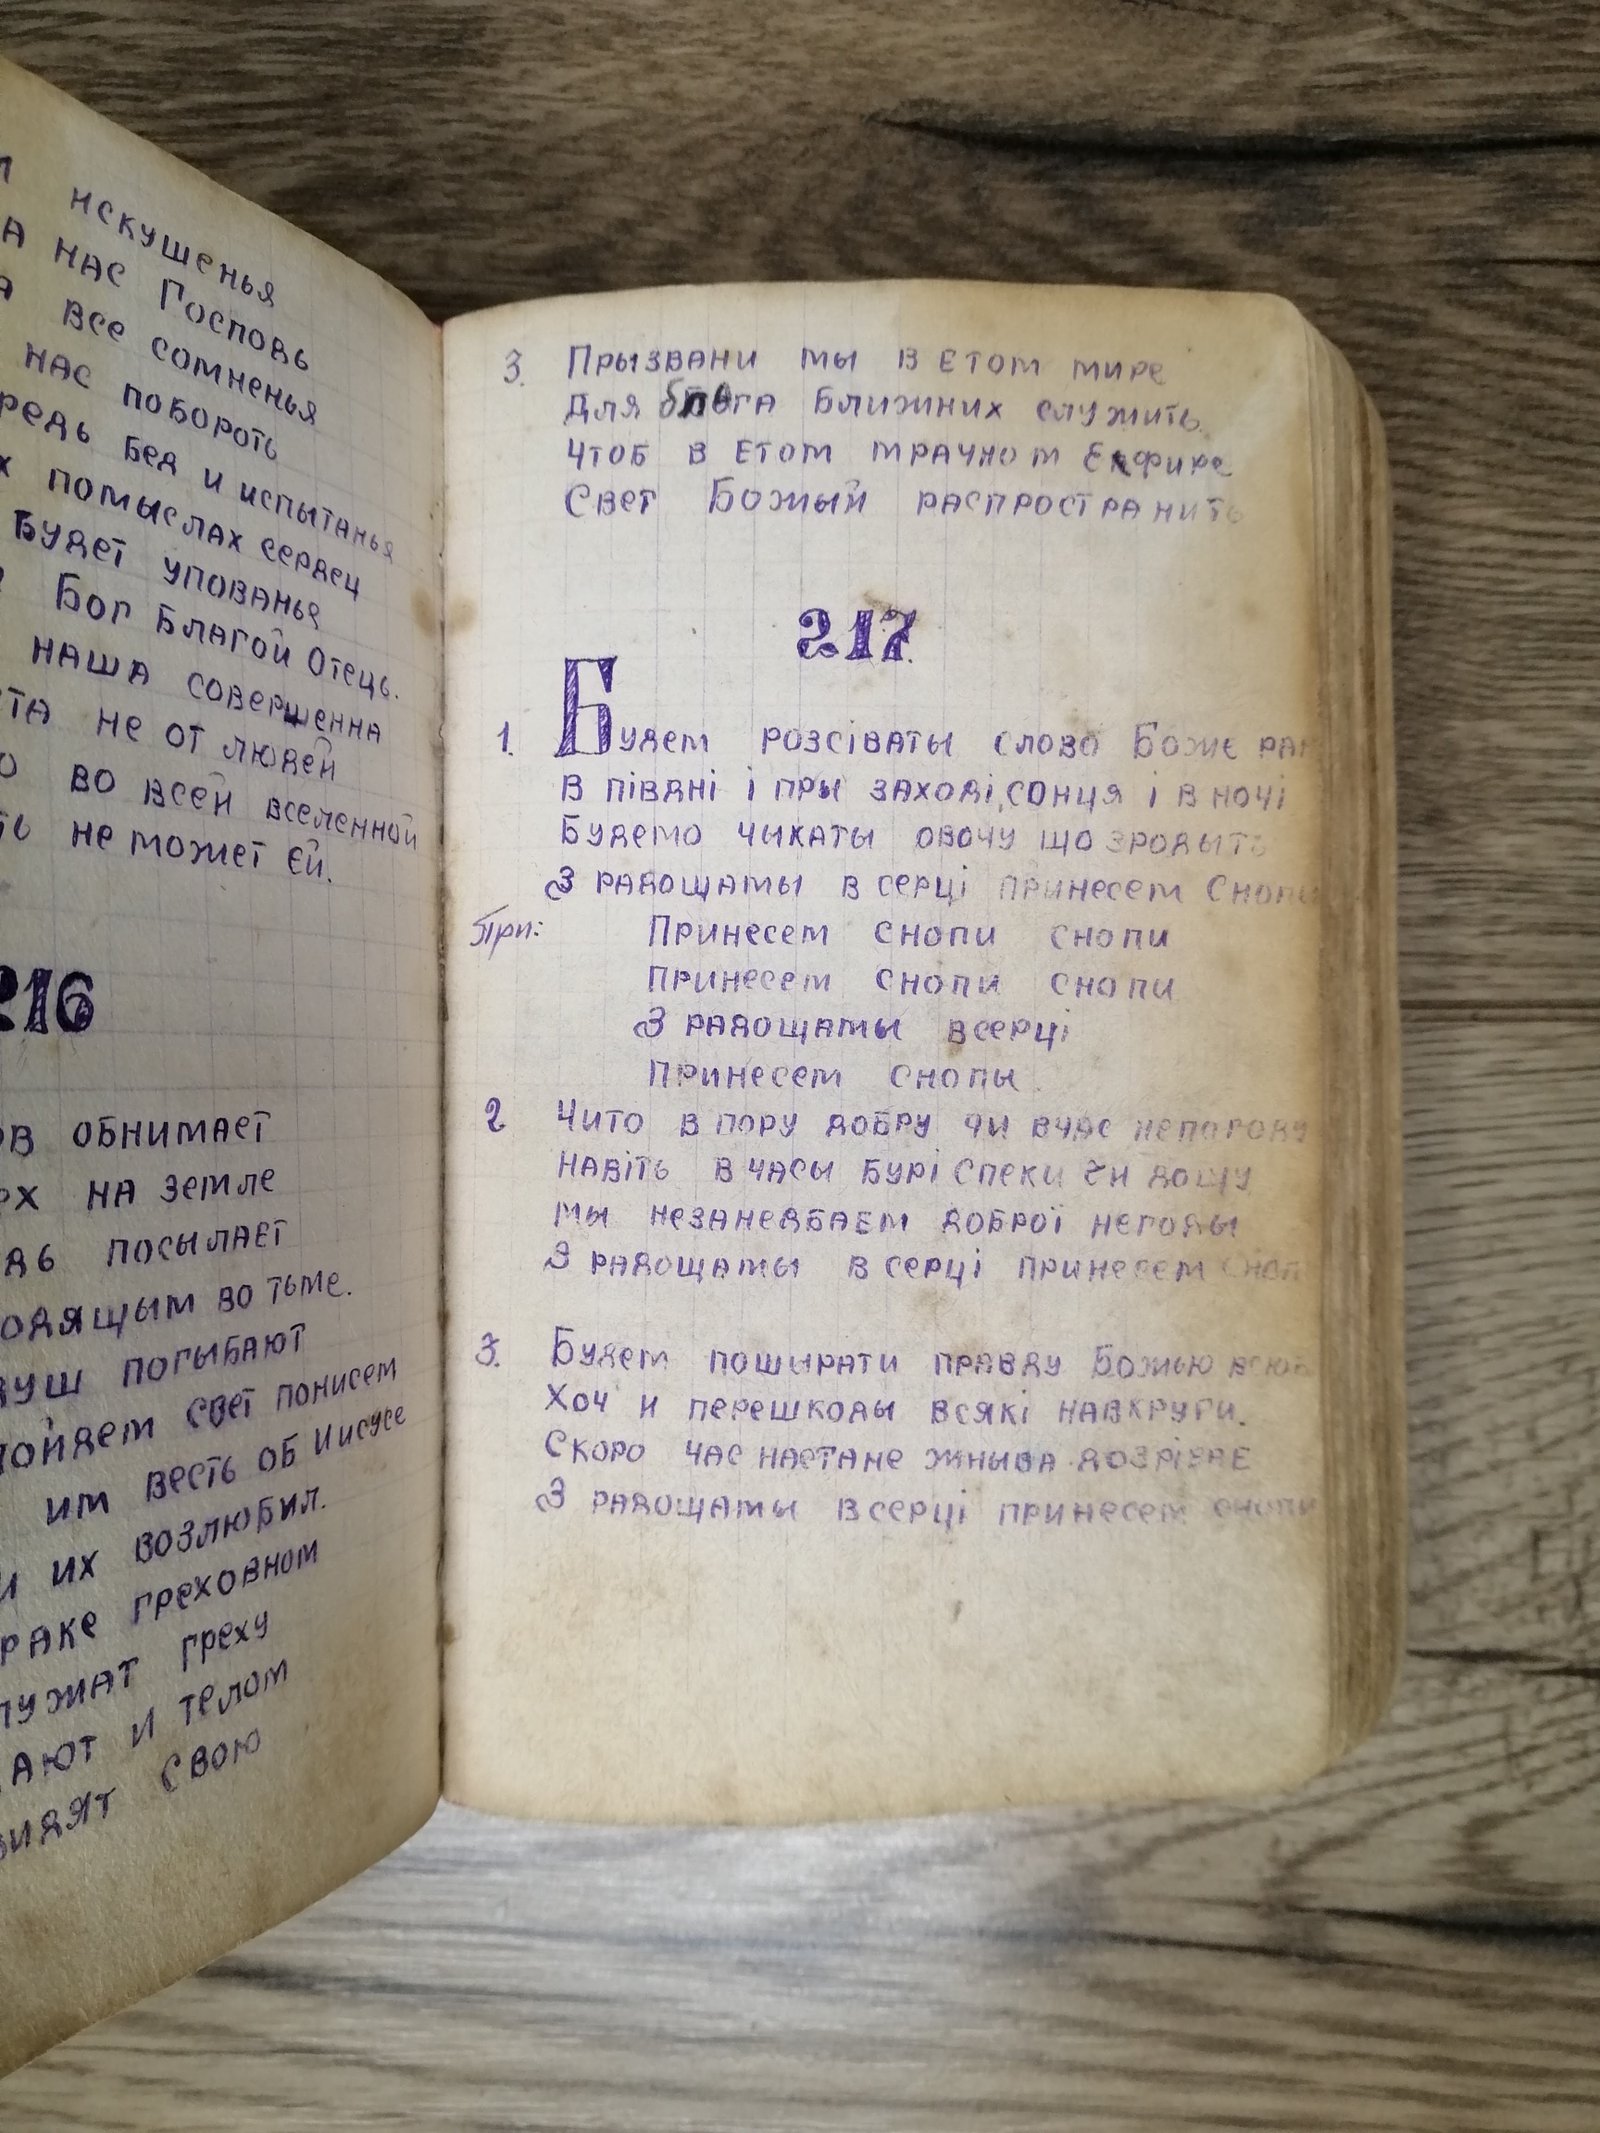 искушенья
нас Господь
все сомненья
нас побороть
бед и испытанья
помыслах сердец
Будет упованье
Бог Благой Отець.
наша совершенна
не от людей
во всей вселенной
не может єй.
216
обнимает
на земле
посылает
во тьме.
погыбают
свет понисем
им весть об Иисусе
их возлюбил.
греховном
греху
и телом
свою
3. Прызвани мы в етом мире
Для блага ближних служить.
Чтоб в етом мрачном
Свет Божый распространить
217
1. Будем розсіваты слово Боже
В півдні і пры заході, сонця і в ночі
Будемо чыкаты овочу що зродыть
З радощамы в серці принесем снопи
При: Принесем снопи снопи
Принесем снопи снопи
З радощамы всерці
Принесем снопы.
2 Чито в пору добру чи вчас непогоду
Навіть в часы бурі спеки чи дощу
Мы незанедбаем доброї негоды
З радощамы в серці принесем
3. Будем пошырати правду Божью
Хоч и перешкоды всякі навкруги.
Скоро час настане жныва дозріває
З радощамы всерці принесем снопи